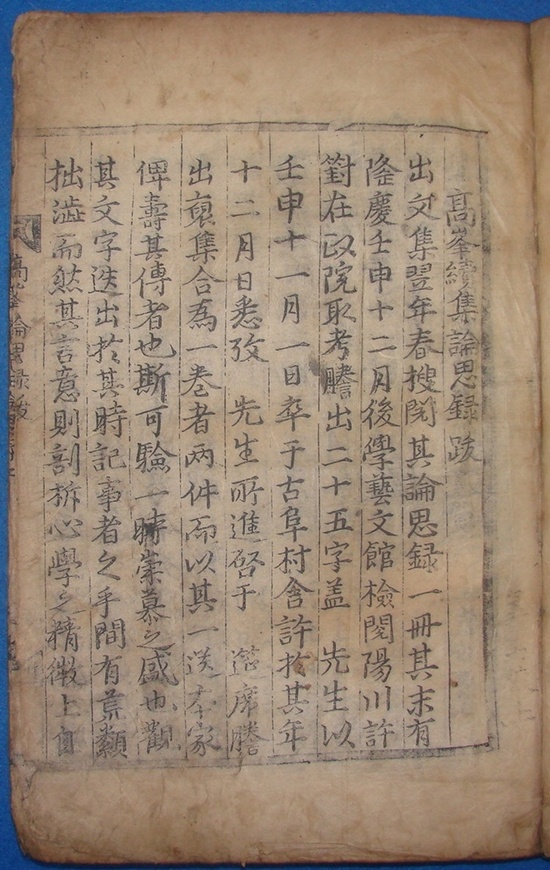 高峯續集論思錄跋
出文集翌年春搜閱其論思録一冊其末有
隆慶壬申十二月後學藝文館檢閱陽川許
篈在政院取考謄出二十五字盖 先生以
壬申十一月一日卒于古阜村舍許於其年
十二月日悉攷 先生所進啓于 筵席謄
出裒集合為一卷者兩件而以其一送本家
俾壽其傳者也斯可驗一時崇慕之感也觀
其文字迭出於其時記事者之手間有荒纇
拙澁而然其言意則剖析心學之精微上自
高峯論思録跋